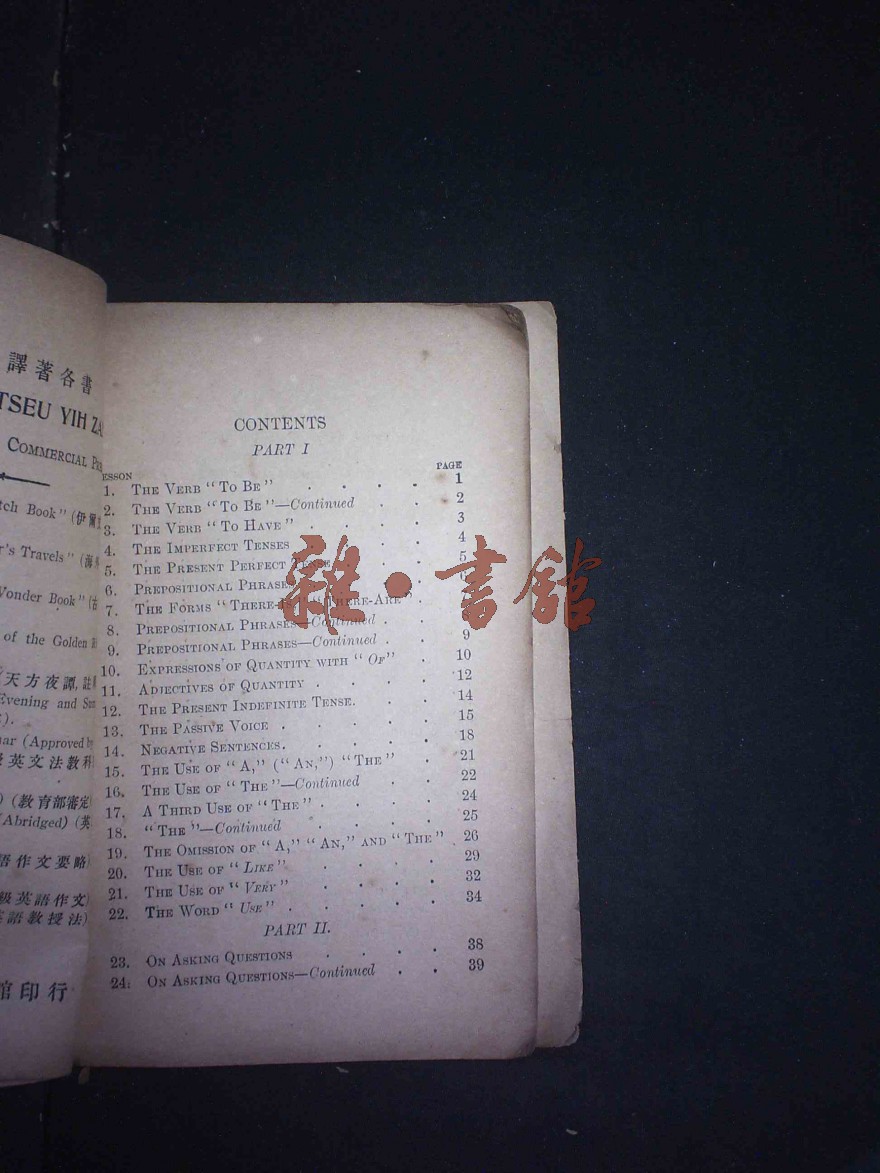 譯著各書
TSEU YIH ZA
COMMERCIAL
tch Book" (伊爾
r's Travels" (海外
Wonder Book" (古
of the Golden
天方夜譚,註
Evening and
).
ar (Approved by
英文法教科
) (教育部審定
(Abridged) (英
語作文要略
級英語作文)
英語教授法)
館印行
CONTENTS
PART I
ESSON PAGE
1. THE VERB "TO BE" . . . . 1
2. THE VERB "TO BE"—Continued . . 2
3. THE VERB "TO HAVE" . . . . 3
4. THE IMPERFECT TENSES . . . 4
5. THE PRESENT PERFECT TENSE 5
6. PREPOSITIONAL PHRASES
7. THE FORMS "THERE-IS," "THERE-ARE"
8. PREPOSITIONAL PHRASES—Continued .
9. PREPOSITIONAL PHRASES—Continued . 9
10. EXPRESSIONS OF QUANTITY WITH "OF" . 10
11. ADJECTIVES OF QUANTITY . . . . 12
12. THE PRESENT INDEFINITE TENSE. . . 14
13. THE PASSIVE VOICE . . . . . 15
14. NEGATIVE SENTENCES. . . . . 18
15. THE USE OF "A," ("AN,") "THE" . 21
16. THE USE OF "THE"—Continued . . 22
17. A THIRD USE OF "THE" . . . . 24
18. "THE"—Continued . . . . 25
19. THE OMISSION OF "A," "AN," AND "THE" 26
20. THE USE OF "LIKE" . . . . 29
21. THE USE OF "VERY" . . . . 32
22. THE WORD "USE" . . . . . 34
PART II.
23. ON ASKING QUESTIONS . . . . 38
24. ON ASKING QUESTIONS—Continued . . 39
雜·書館